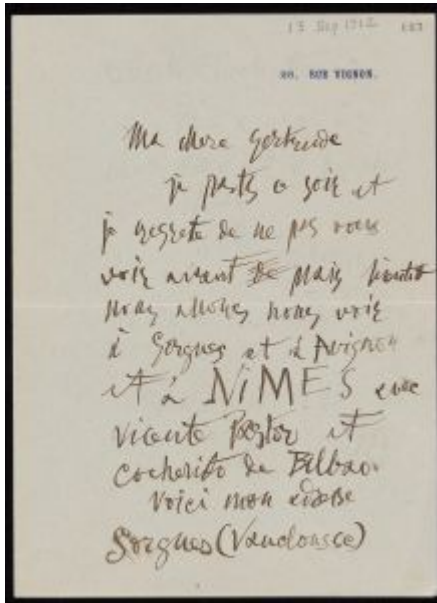 13 Sep 1912
28, RUE VIGNON.
Ma chere gertrude
je parts ce soir et
je regrete de ne pas vous
voir avant de mais bientot
nous allons nous voir
à Sorgues et à Avignon
et à NiMES avec
Vicente Pastor et
Cocherito de Bilbao.
Voici mon adresse
Sorgues (Vaucluse)